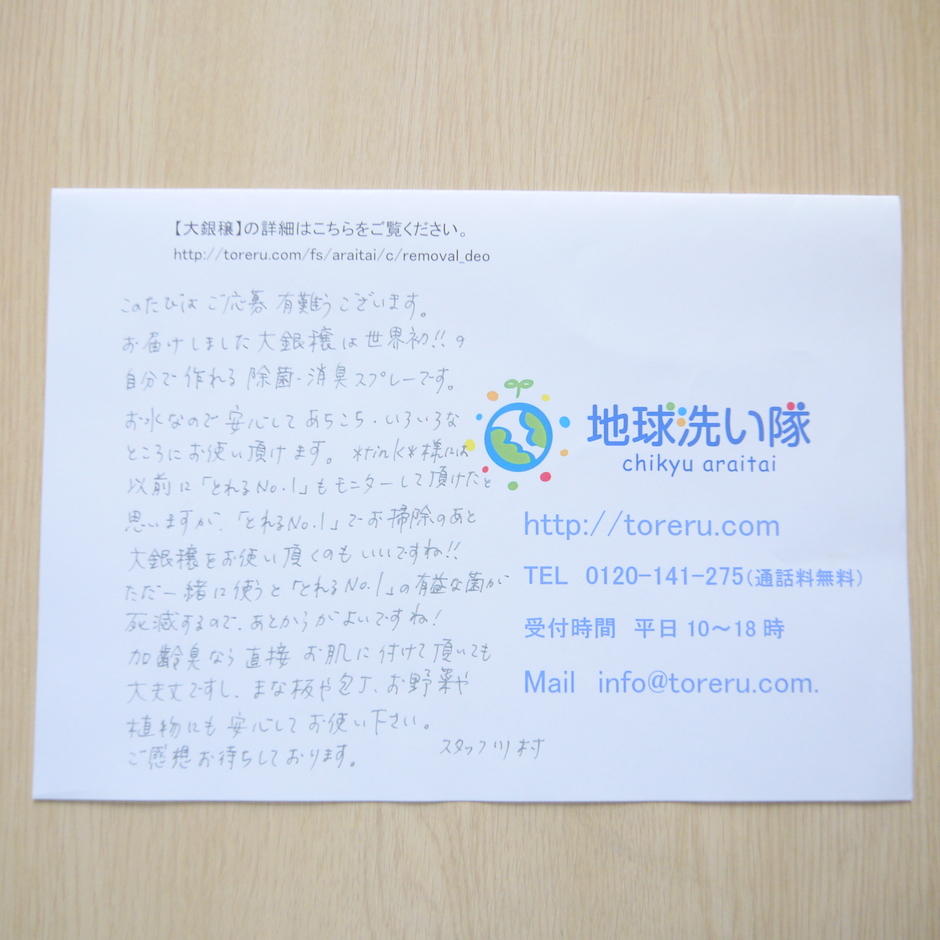 【大銀穣】の詳細はこちらをご覧ください。
http://toreru.com/fs/araitai/c/removal_deo
このたびは ご応募 有難うございます。
お届けしました 大銀穣は 世界初!!の
自分で 作れる 除菌・消臭スプレーです。
お水なので 安心して あちこち・いろいろな
ところに お使い頂けます。 *rink*様には
以前に「とれるNo.1」もモニターして頂けたと
思いますが、「とれるNo.1」でお掃除のあと
大銀穣をお使い頂くのもいいですね!!
ただ一緒に使うと「とれるNo.1」の有益な菌が
死滅するので、あとからがよいですね!
加齢臭なら 直接 お肌に 付けて頂いても
大丈夫ですし、まな板や包丁、お野菜や
植物にも 安心して お使い下さい。
ご感想お待ちしております。
スタッフ 川村
地球洗い隊
chikyu araitai
http://toreru.com
TEL 0120-141-275(通話料無料)
受付時間 平日10~18時
Mail info@toreru.com.